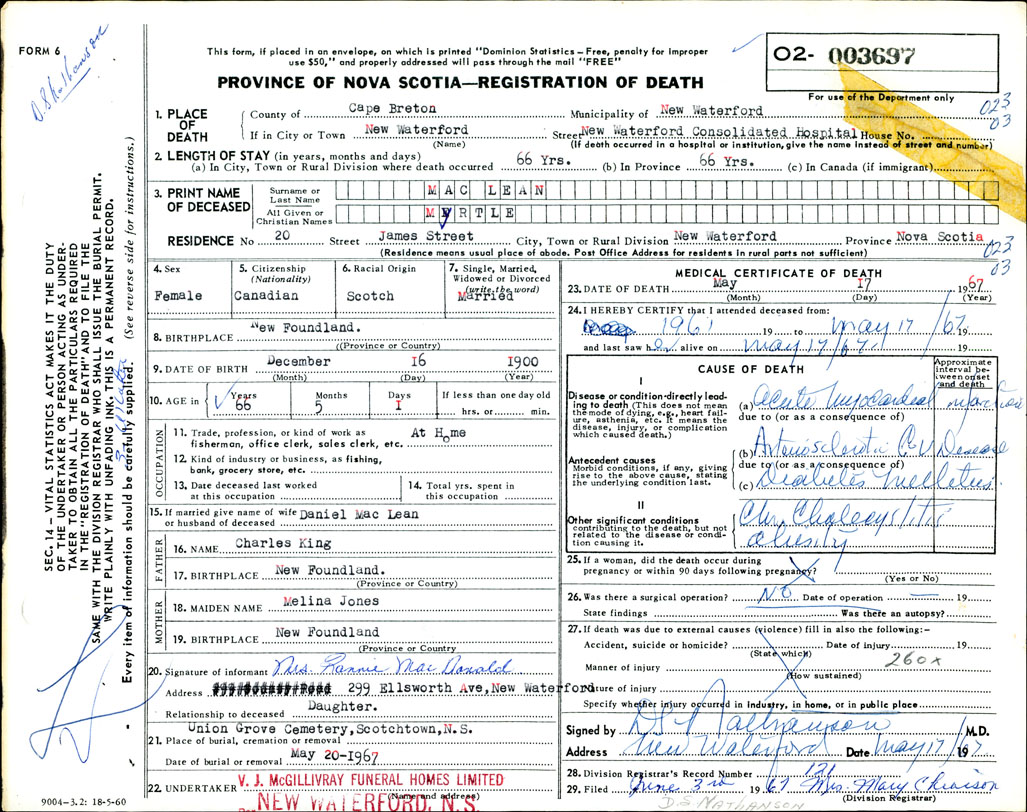 FORM 6
This form, if placed in an envelope, on which is printed "Dominion Statistics – Free, penalty for improper
use $50," and properly addressed will pass through the mail "FREE"
O2- 003697
PROVINCE OF NOVA SCOTIA—REGISTRATION OF DEATH
For use of the Department only
023
03
1. PLACE OF DEATH
County of Cape Breton Municipality of New Waterford
If in City or Town New Waterford Street New Waterford Consolidated Hospital House No.
(Name) (If death occurred in a hospital or institution, give the name instead of street and number)
2. LENGTH OF STAY (in years, months and days)
(a) In City, Town or Rural Division where death occurred 66 Yrs. (b) In Province 66 Yrs. (c) In Canada (if immigrant)
3. PRINT NAME OF DECEASED
Surname or Last Name MAC LEAN
All Given or Christian Names MYRTLE
RESIDENCE No 20 Street James Street City, Town or Rural Division New Waterford Province Nova Scotia
(Residence means usual place of abode. Post Office Address for residents in rural parts not sufficient)
023
03
4. Sex
Female
5. Citizenship (Nationality)
Canadian
6. Racial Origin
Scotch
7. Single, Married, Widowed or Divorced (write the word)
Married
8. BIRTHPLACE New Foundland.
((Province or Country)
9. DATE OF BIRTH December 16 1900
(Month) (Day) (Year)
10. AGE in Years 66 Months 5 Days 1 If less than one day old
hrs. or min.
OCCUPATION
11. Trade, profession, or kind of work as At Home
fisherman, office clerk, sales clerk, etc.
12. Kind of industry or business, as fishing,
bank, grocery store, etc.
13. Date deceased last worked
at this occupation
14. Total yrs. spent in
this occupation
15. If married give name of wife Daniel Mac Lean
or husband of deceased
FATHER
16. NAME Charles King
17. BIRTHPLACE New Foundland.
(Province or Country)
MOTHER
18. MAIDEN NAME Melina Jones
19. BIRTHPLACE New Foundland
(Province or Country)
20. Signature of informant Mrs. Fannie Mac Donald
Address 299 Ellsworth Ave, New Waterford
Relationship to deceased Daughter.
Union Grove Cemetery, Scotchtown, N.S.
21. Place of burial, cremation or removal
Date of burial or removal May 20-1967
22. UNDERTAKER V. J. McGILLIVRAY FUNERAL HOMES LIMITED
(Name and address)
NEW WATERFORD, N.S.
MEDICAL CERTIFICATE OF DEATH
23. DATE OF DEATH May 17 1967
(Month) (Day) (Year)
24. I HEREBY CERTIFY that I attended deceased from:
1961 19 to May 17 /67 19
and last saw her alive on May 17/67 19
CAUSE OF DEATH
Approximate interval between onset and death
I
Disease or condition directly leading to death (This does not mean the mode of dying, e.g., heart failure, asthenia, etc. It means the disease, injury, or complication which caused death.)
(a) Acute Myocardial Infarction
due to (or as a consequence of)
Antecedent causes
Morbid conditions, if any, giving rise to the above cause, stating the underlying condition last.
(b) Arteriosclerotic C V Disease
due to (or as a consequence of)
(c) Diabetes Mellitus
II
Other significant conditions
contributing to the death, but not related to the disease or condition causing it.
Chr. Cholecystitis
obesity
25. If a woman, did the death occur during
pregnancy or within 90 days following pregnancy?
(Yes or No)
26. Was there a surgical operation? No Date of operation 19
State findings Was there an autopsy?
27. If death was due to external causes (violence) fill in also the following:–
Accident, suicide or homicide? Date of injury 19
(State which)
Manner of injury 260x
(How sustained)
Nature of injury
Specify whether injury occurred in Industry, in home, or in public place
Signed by D S Nathanson M.D.
Address New Waterford Date May 17/ 1967
28. Division Registrar's Record Number 121
29. Filed June 3rd 1967 Mrs. Mary Chiaison
(Division Registrar)
D. S. NATHANSON
9004–3.2: 18-5-60
SEC. 14 – VITAL STATISTICS ACT MAKES IT THE DUTY
OF THE UNDERTAKER OR PERSON ACTING AS UNDER-
TAKER TO OBTAIN ALL THE PARTICULARS REQUIRED
IN THE "REGISTRATION OF DEATH" AND TO FILE THE
SAME WITH THE DIVISION REGISTRAR WHO SHALL ISSUE THE BURIAL PERMIT.
WRITE PLAINLY WITH UNFADING INK. THIS IS A PERMANENT RECORD.
Every item of information should be carefully supplied. (See reverse side for instructions.)
D. S Nathanson